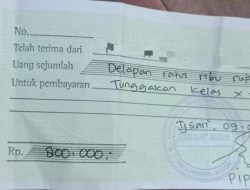 No.
Telah terima dari
Uang sejumlah Delapan ratus ribu rup
Untuk pembayaran Tunggakan Kelas X
Tjsari, 09
Rp. 800.000,-